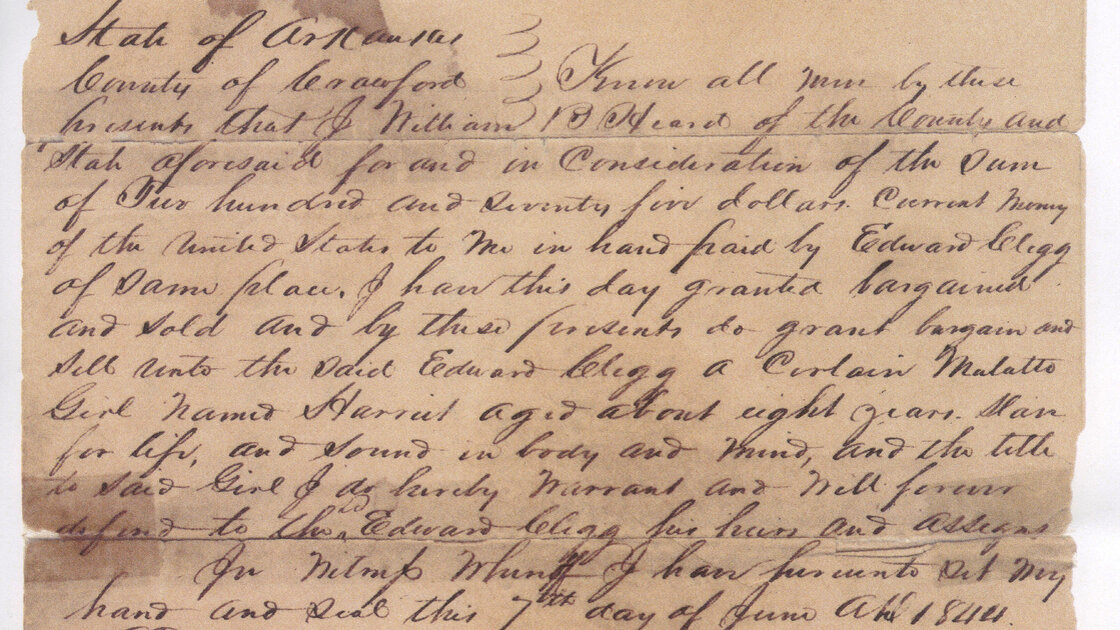 State of Arkansas
County of Crawford } Know all men by these
presents that I William B Heard of the County and
State aforesaid for and in Consideration of the sum
of Two hundred and seventy five dollars. Current Money
of the United States to Me in hand paid by Edward Clegg
of same place. I have this day granted bargained
and sold and by these presents do grant bargain and
sell unto the said Edward Clegg a Certain Mulatto
Girl Named Harriet aged about eight years. Slave
for life, and sound in body and mind, and the title
to said Girl I do hereby Warrant and Will forever
defend to the sd Edward Clegg his heirs and assigns
In Witness Whereof I have hereunto set My
hand and seal this 7th day of June AD 1844.